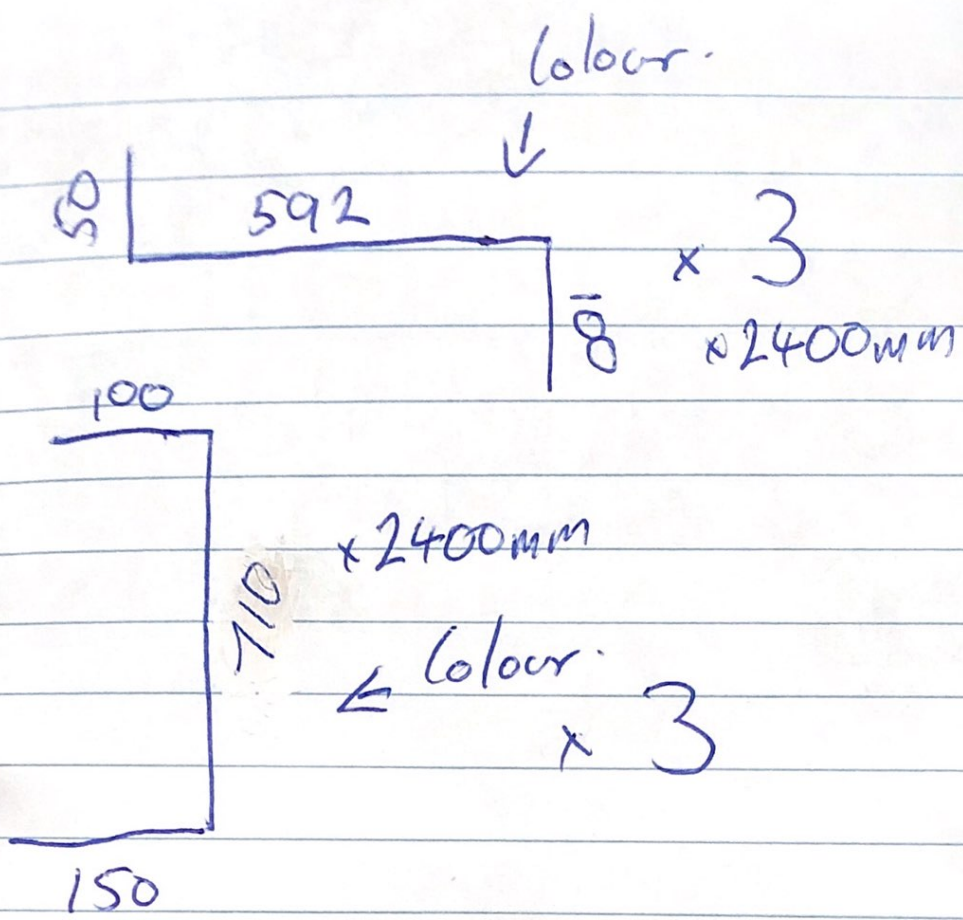 Colour.
50
592
100
x 3
x2400mm
100
x2400mm
710
Colour.
x 3
150